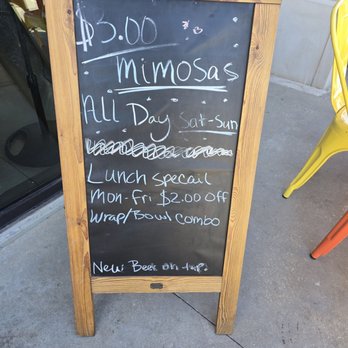 $5.00
Mimosas
All Day Sat-Sun
Lunch Specail
Mon-Fri $2.00 Off
Wrap/Bowl Combo
New Beer on tap!